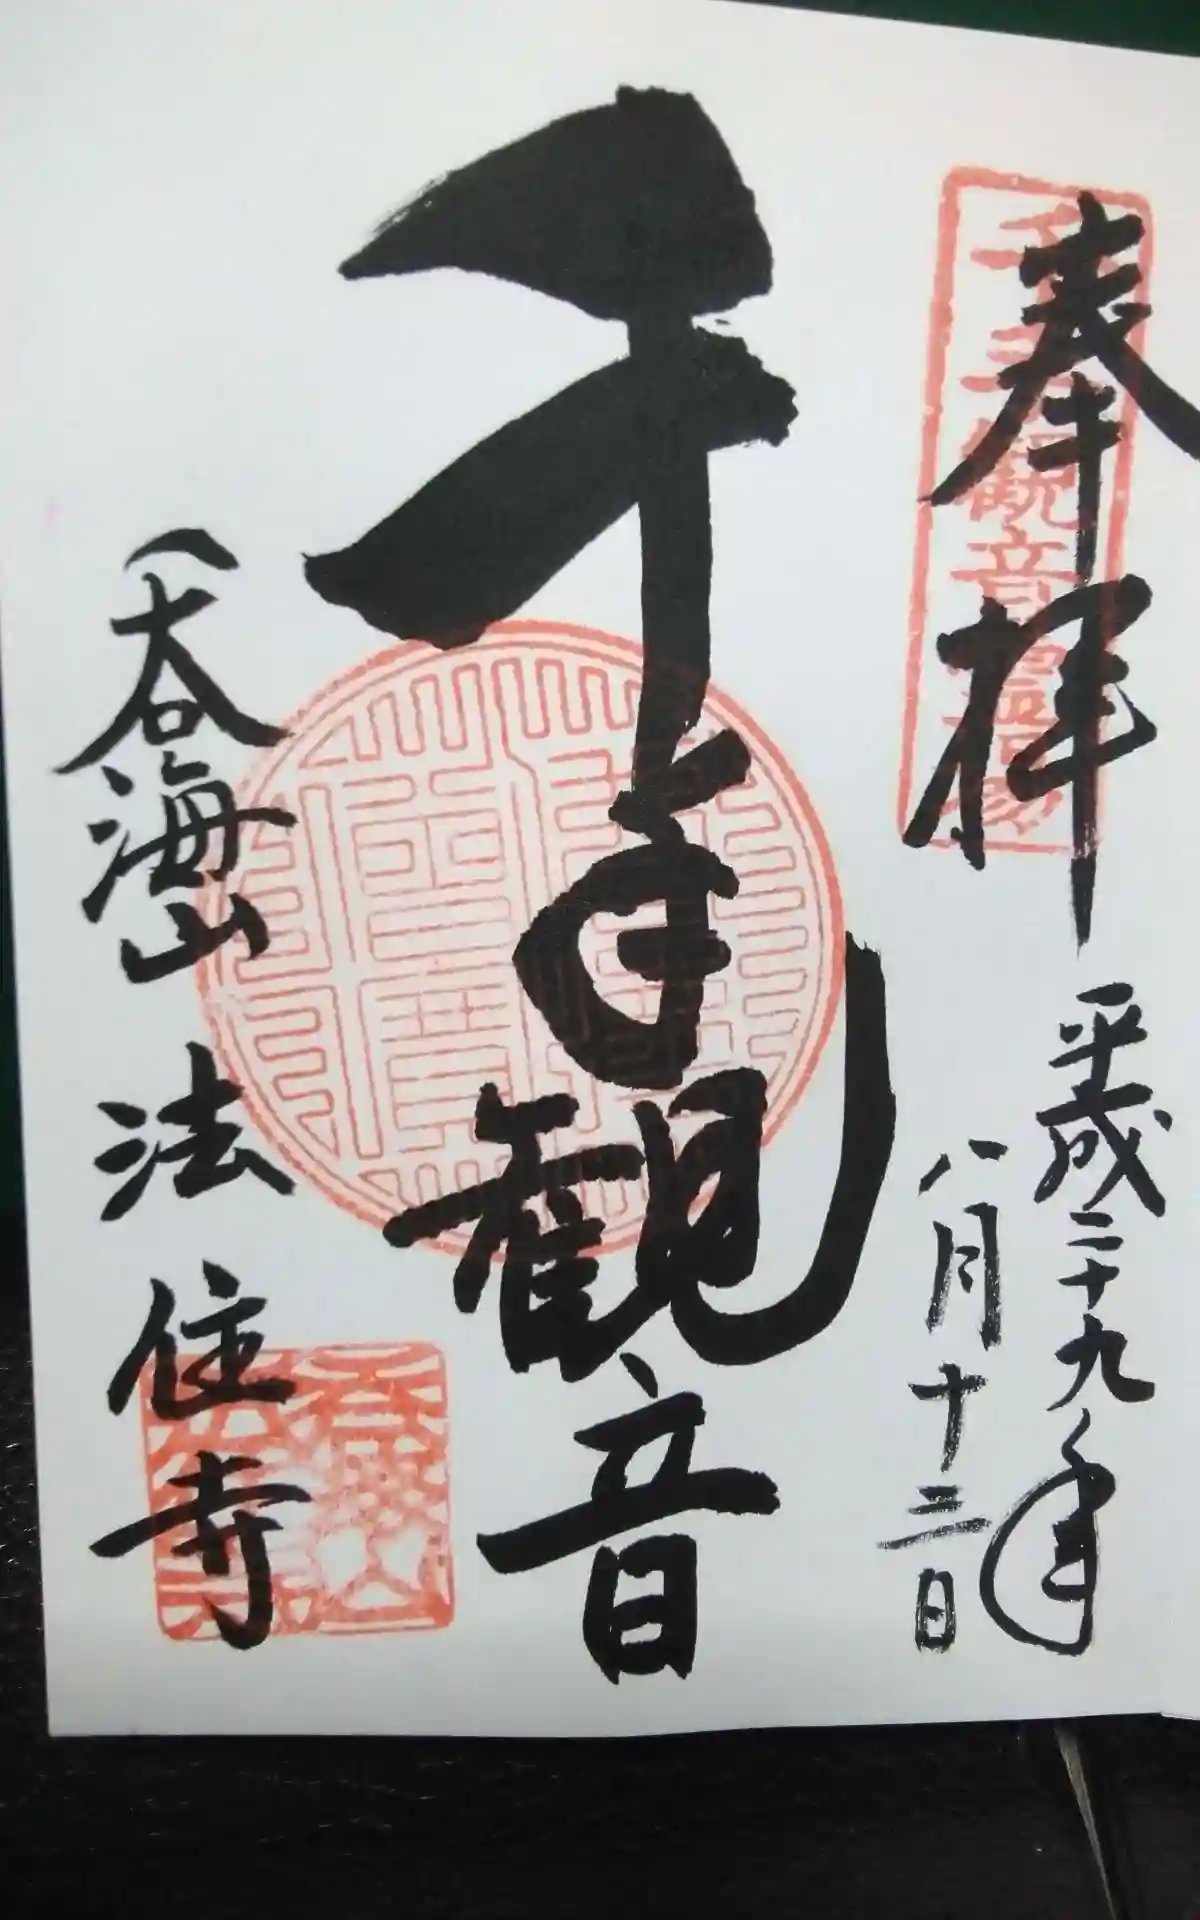 奉拝
千手観音霊場
平成二十九年
八月十三日
千手観音
呑海山 法住寺